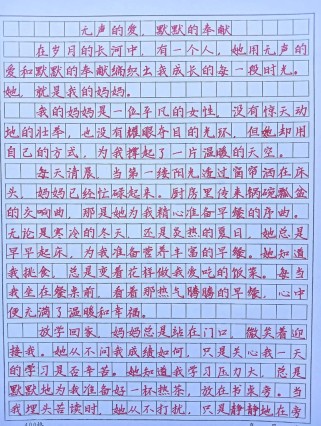 无声的爱，默默的奉献
在岁月的长河中，有一个人，她用无声的
爱和默默的奉献编织出我成长的每一段时光。
她，就是我的妈妈。
我的妈妈是一位平凡的女性，没有惊天动
地的壮举，也没有耀眼夺目的光环，但她却用
自己的方式，为我撑起了一片温暖的天空。
每天清晨，当第一缕阳光透过窗帘洒在床
头，妈妈已经忙碌起来。厨房里传来锅碗瓢盆
的交响曲，那是她为我精心准备早餐的序曲。
无论是寒冷的冬天，还是炎热的夏日，她总是
早早起床，为我准备营养丰富的早餐。她知道
我挑食，总是变着花样做我爱吃的饭菜。每当
我坐在餐桌前，看着那热气腾腾的早餐，心中
便充满了温暖和幸福。
放学回家，妈妈总是站在门口，微笑着迎
接我。她从不问我成绩如何，只是关心我一天
的学习是否辛苦。她知道我学习压力大，总是
默默地为我准备好一杯热茶，放在书桌旁。当
我埋头苦读时，她从不打扰，只是静静地在旁